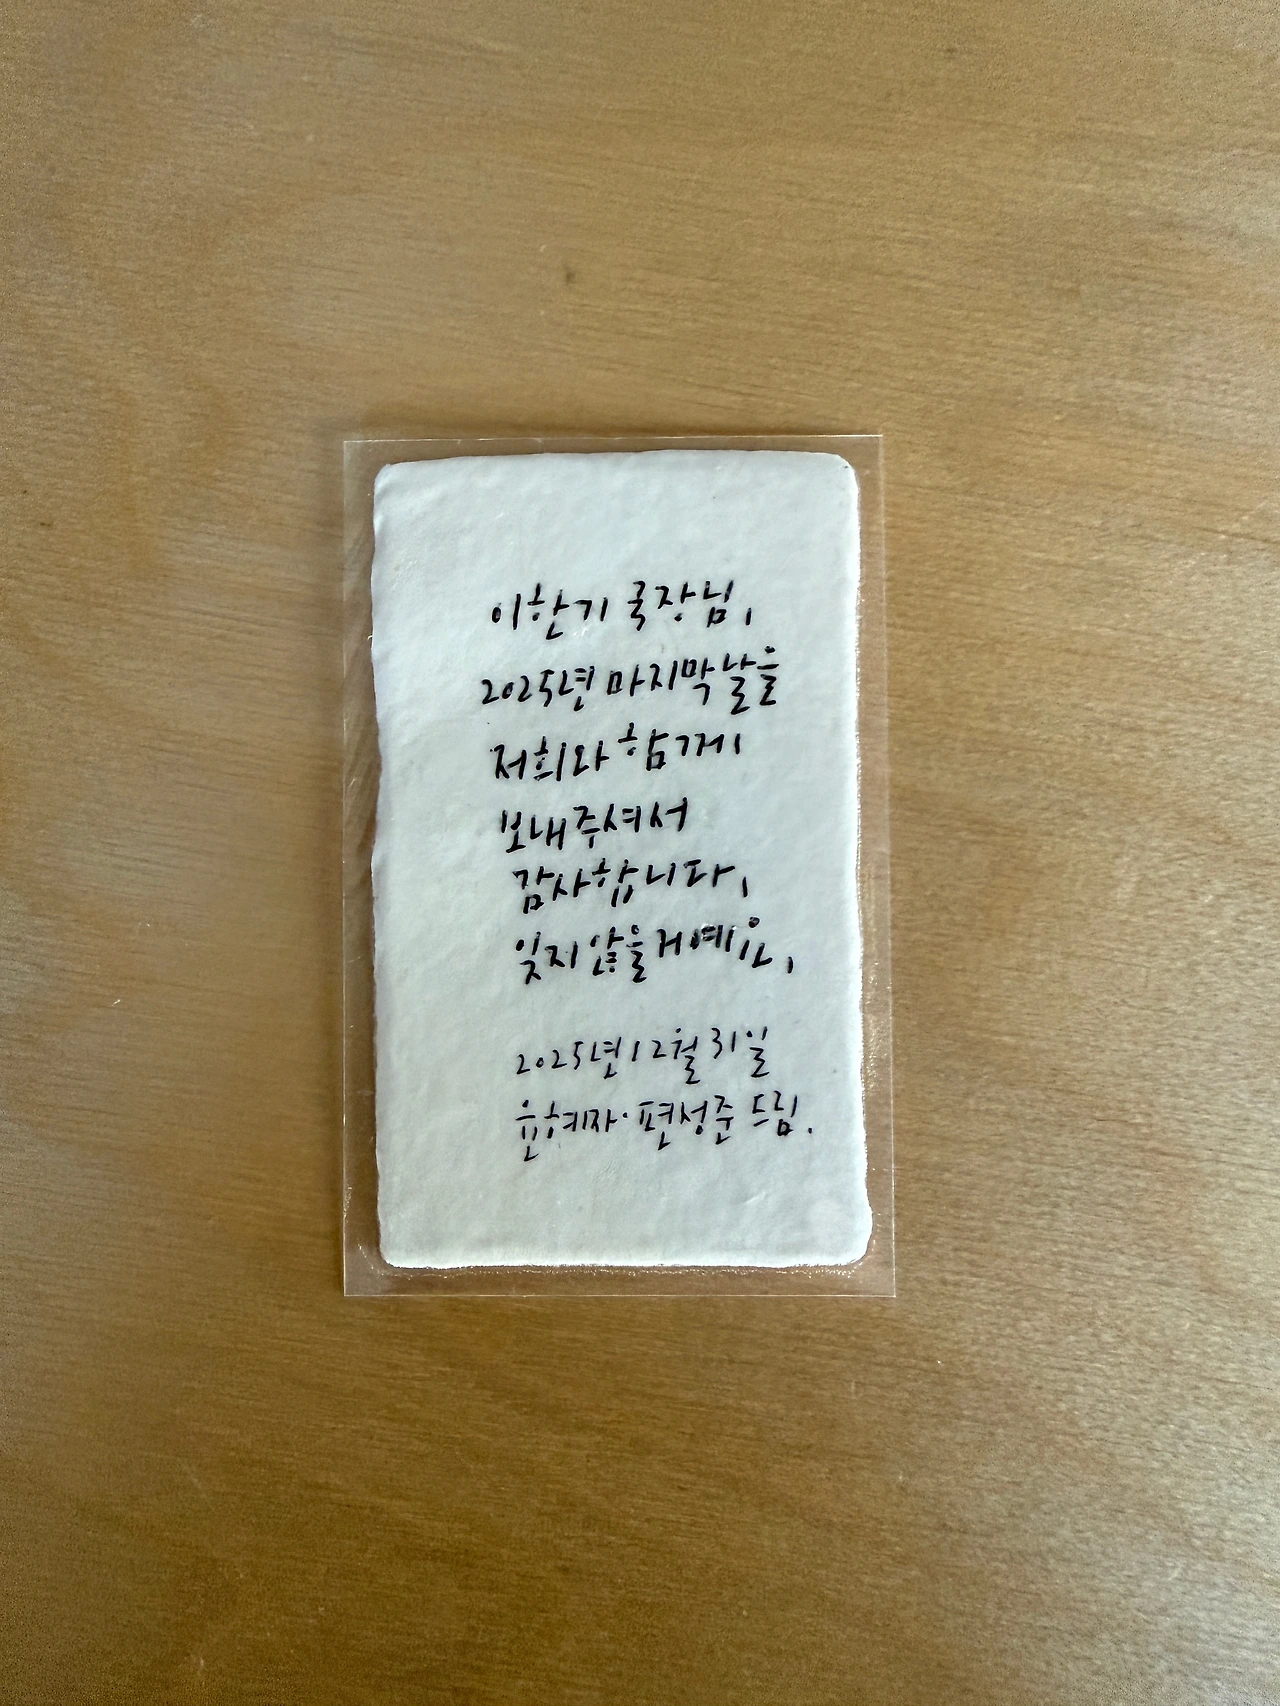 이한기 국장님,
2025년 마지막 날을
저희와 함께
보내주셔서
감사합니다,
잊지 않을 거예요,
2025년 12월 31일
윤혜자·편성준 드림.